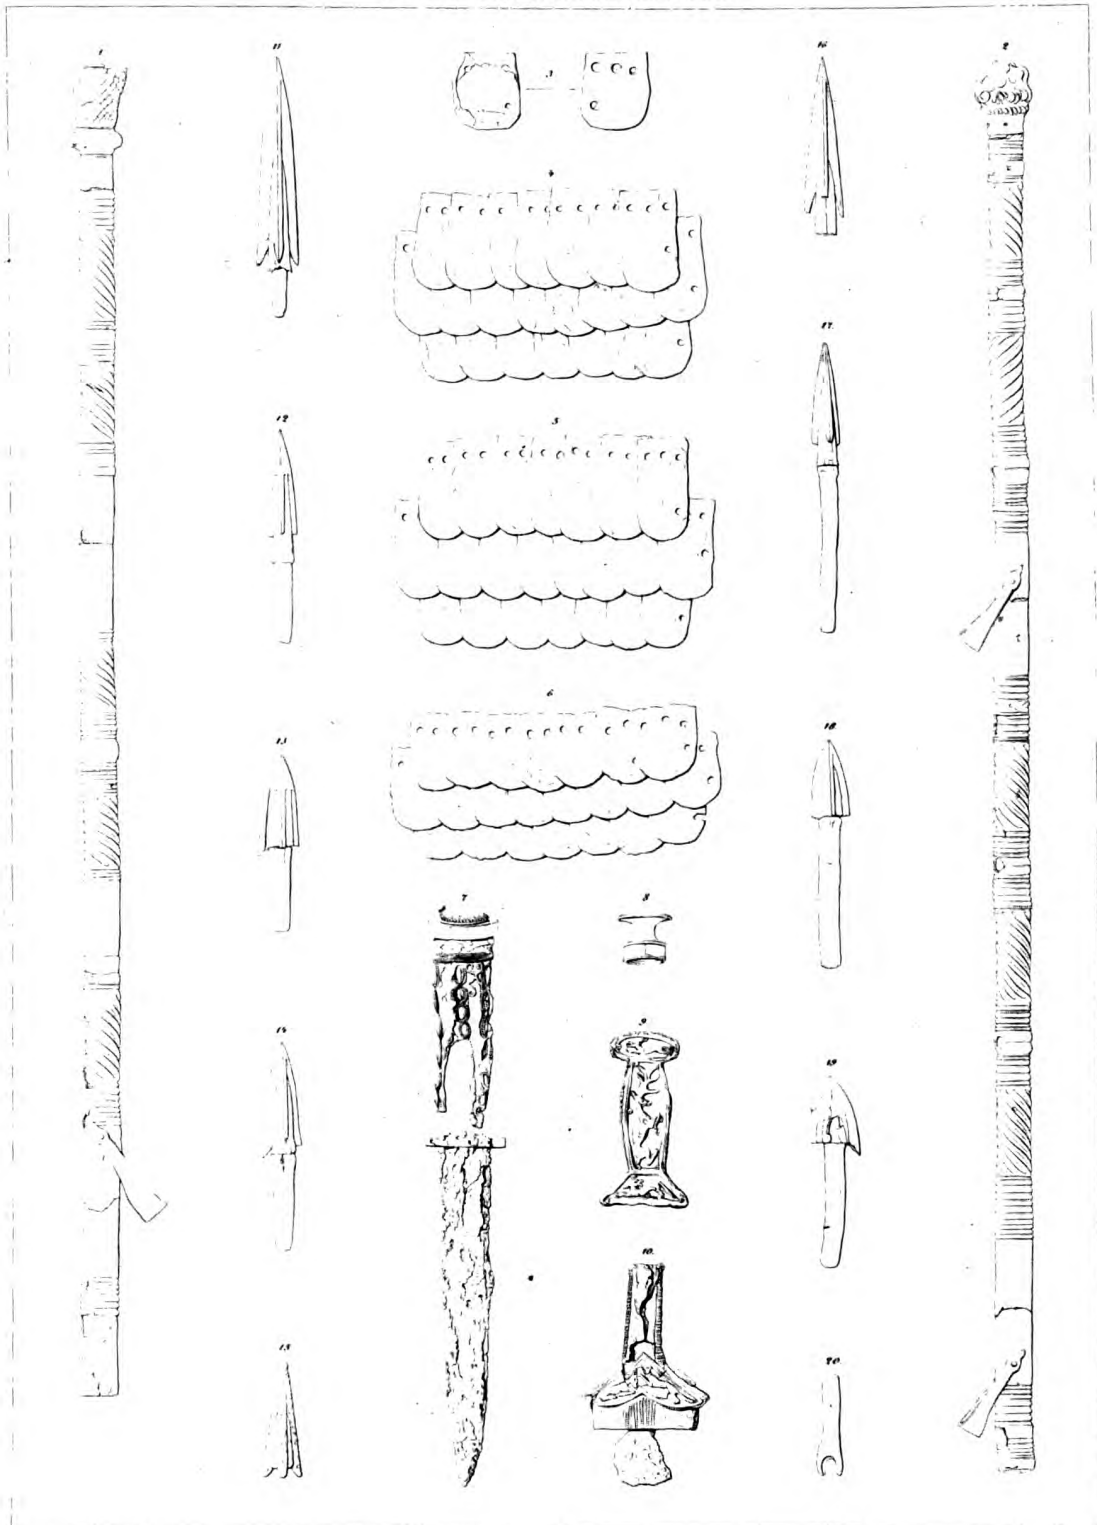 1
11
3
16
2
4
17.
12
5
6
18.
13
7
8
14
9
19
10.
15
20.